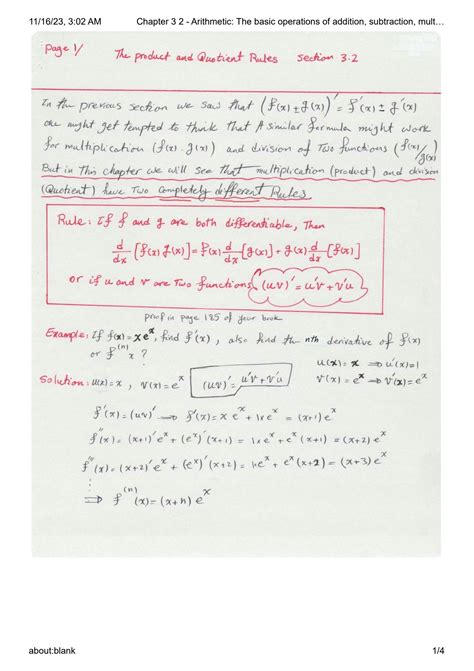 11/16/23, 3:02 AM Chapter 3 2 - Arithmetic: The basic operations of addition, subtraction, mult…
Page 1/ The product and Quotient Rules section 3.2
In the previous section we saw that (f(x) ± g(x))' = f'(x) ± g'(x)
one might get tempted to think that A similar formula might work
for multiplication (f(x) · g(x)) and division of Two functions (f(x)/g(x))
But in This chapter we will see that multiplication (product) and division
(Quotient) have Two completely different Rules
Rule: If f and g are both differentiable, Then
d/dx [f(x) g(x)] = f(x) d/dx [g(x)] + g(x) d/dx [f(x)]
or if u and v are Two functions (uv)' = u'v + v'u
proof in page 185 of your book
Example: If f(x) = xe^x, find f'(x), also find the nth derivative of f(x)
or f^(n) x ?
u(x) = x ⇒ u'(x) = 1
Solution: u(x) = x, v(x) = e^x (uv)' = u'v + v'u v(x) = e^x ⇒ v'(x) = e^x
f'(x) = (uv)' ⇒ f'(x) = x e^x + 1x e^x = (x+1) e^x
f''(x) = (x+1)' e^x + (e^x)' (x+1) = 1x e^x + e^x (x+1) = (x+2) e^x
f'''(x) = (x+2)' e^x + (e^x)' (x+2) = 1·e^x + e^x (x+2) = (x+3) e^x
⇒ f^(n) (x) = (x+n) e^x
about:blank 1/4